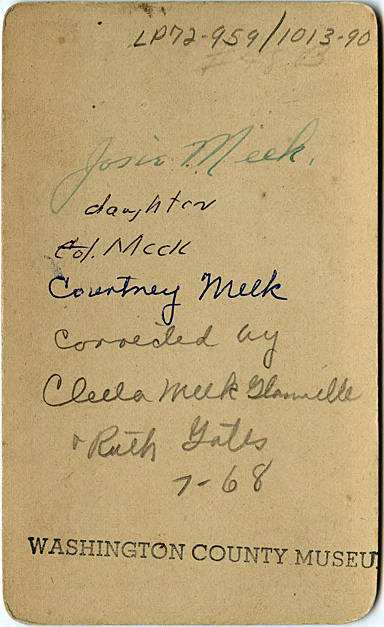 LP72-959/1013-90
Josie Meek.
daughter
Col. Meek
Courtney Meek
Corrected by
Cleela Meek Glanville
& Ruth Gates
7-68
WASHINGTON COUNTY MUSEU